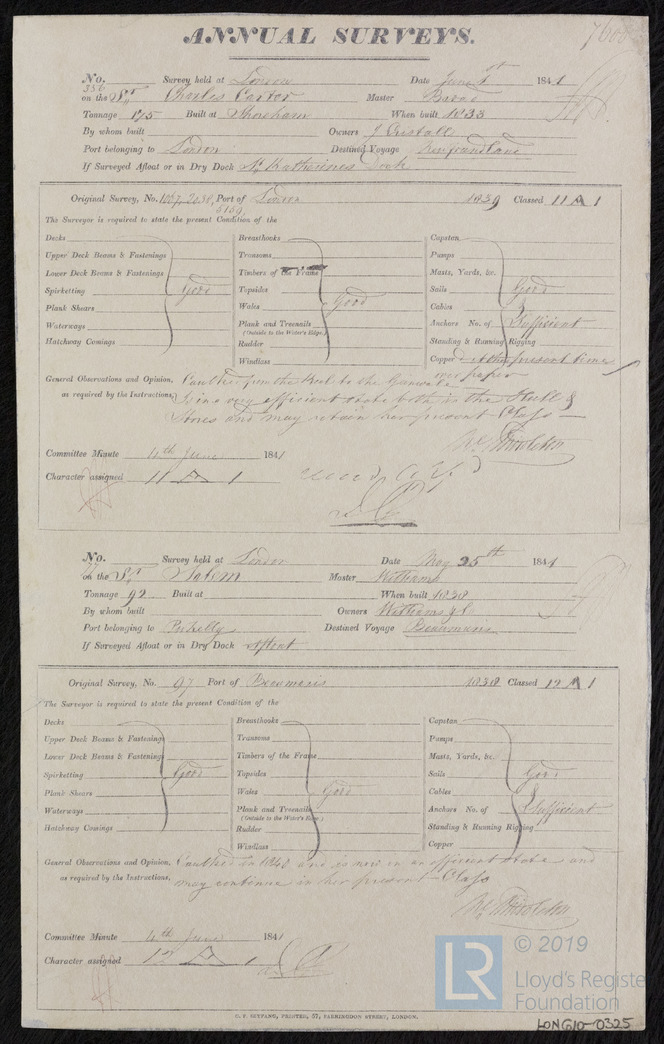 7600
ANNUAL SURVEYS.
No. 356 Survey held at London Date June 1st 1841
on the Sr Charles Carter Master
Tonnage 175 Built at Shoreham When built 1833
By whom built Owners J Cristall
Port belonging to London Destined Voyage Newfoundland
If Surveyed Afloat or in Dry Dock St Katherines Dock
Original Survey, No. 1007, 2038, 5169 Port of London 1839 Classed 11 A 1
The Surveyor is required to state the present Condition of the
Decks Breasthooks Capstan
Upper Deck Beams & Fastenings Transoms Pumps
Lower Deck Beams & Fastenings Timbers of the Frame Masts, Yards, &c.
Spirketting Good Topsides Sails Good
Plank Shears Wales Good Cables &
Waterways Plank and Treenails Anchors No. of Sufficient
(Outside to the Water's Edge.)
Hatchway Comings Rudder Standing & Running Rigging
Windlass Copper at the present time
over paper
General Observations and Opinion, Caulked from the Keel to the Gunwale
as required by the Instructions, is in a very efficient state both in the Hull &
Stores and may retain her present Class
Committee Minute 4th June 1841
Character assigned 11 A 1
No. 77 Survey held at London Date May 25th 1841
on the Sr Salem Master Williams
Tonnage 92 Built at When built 1838
By whom built Owners Williams & Co
Port belonging to Pwhelly Destined Voyage Beaumaris
If Surveyed Afloat or in Dry Dock Afloat
Original Survey, No. 97 Port of Beaumaris 1838 Classed 12 A 1
The Surveyor is required to state the present Condition of the
Decks Breasthooks Capstan
Upper Deck Beams & Fastenings Transoms Pumps
Lower Deck Beams & Fastenings Timbers of the Frame Masts, Yards, &c.
Spirketting Good Topsides Sails Good
Plank Shears Wales Good Cables &
Waterways Plank and Treenails Anchors No. of Sufficient
(Outside to the Water's Edge.)
Hatchway Comings Rudder Standing & Running Rigging
Windlass Copper
General Observations and Opinion, Caulked in 1840 and is now in an efficient state and
as required by the Instructions, may continue in her present Class
Committee Minute 4th June 1841
Character assigned 12 A 1
LR © 2019
Lloyd's Register
Foundation
C. F. SEYFANG, PRINTER, 57, FARRINGDON STREET, LONDON.
LON610-0325